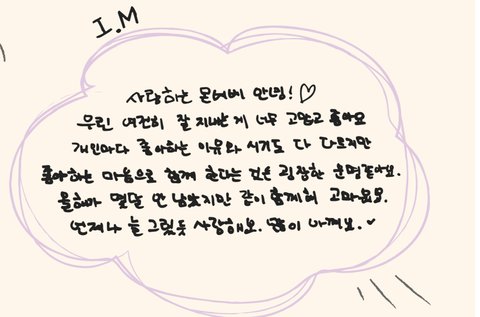 I.M
사랑하는 몬베베 안녕! ♡
우린 여전히 잘 지내는 게 너무 고맙고 좋아요
개인마다 좋아하는 이유와 시기도 다 다르지만
좋아하는 마음으로 함께 한다는 건 굉장한 운명같아요.
올해가 몇달 안 남았지만 같이 함께해 고마워요.
언제나 늘 그렇듯 사랑해요. 많이 아껴요.